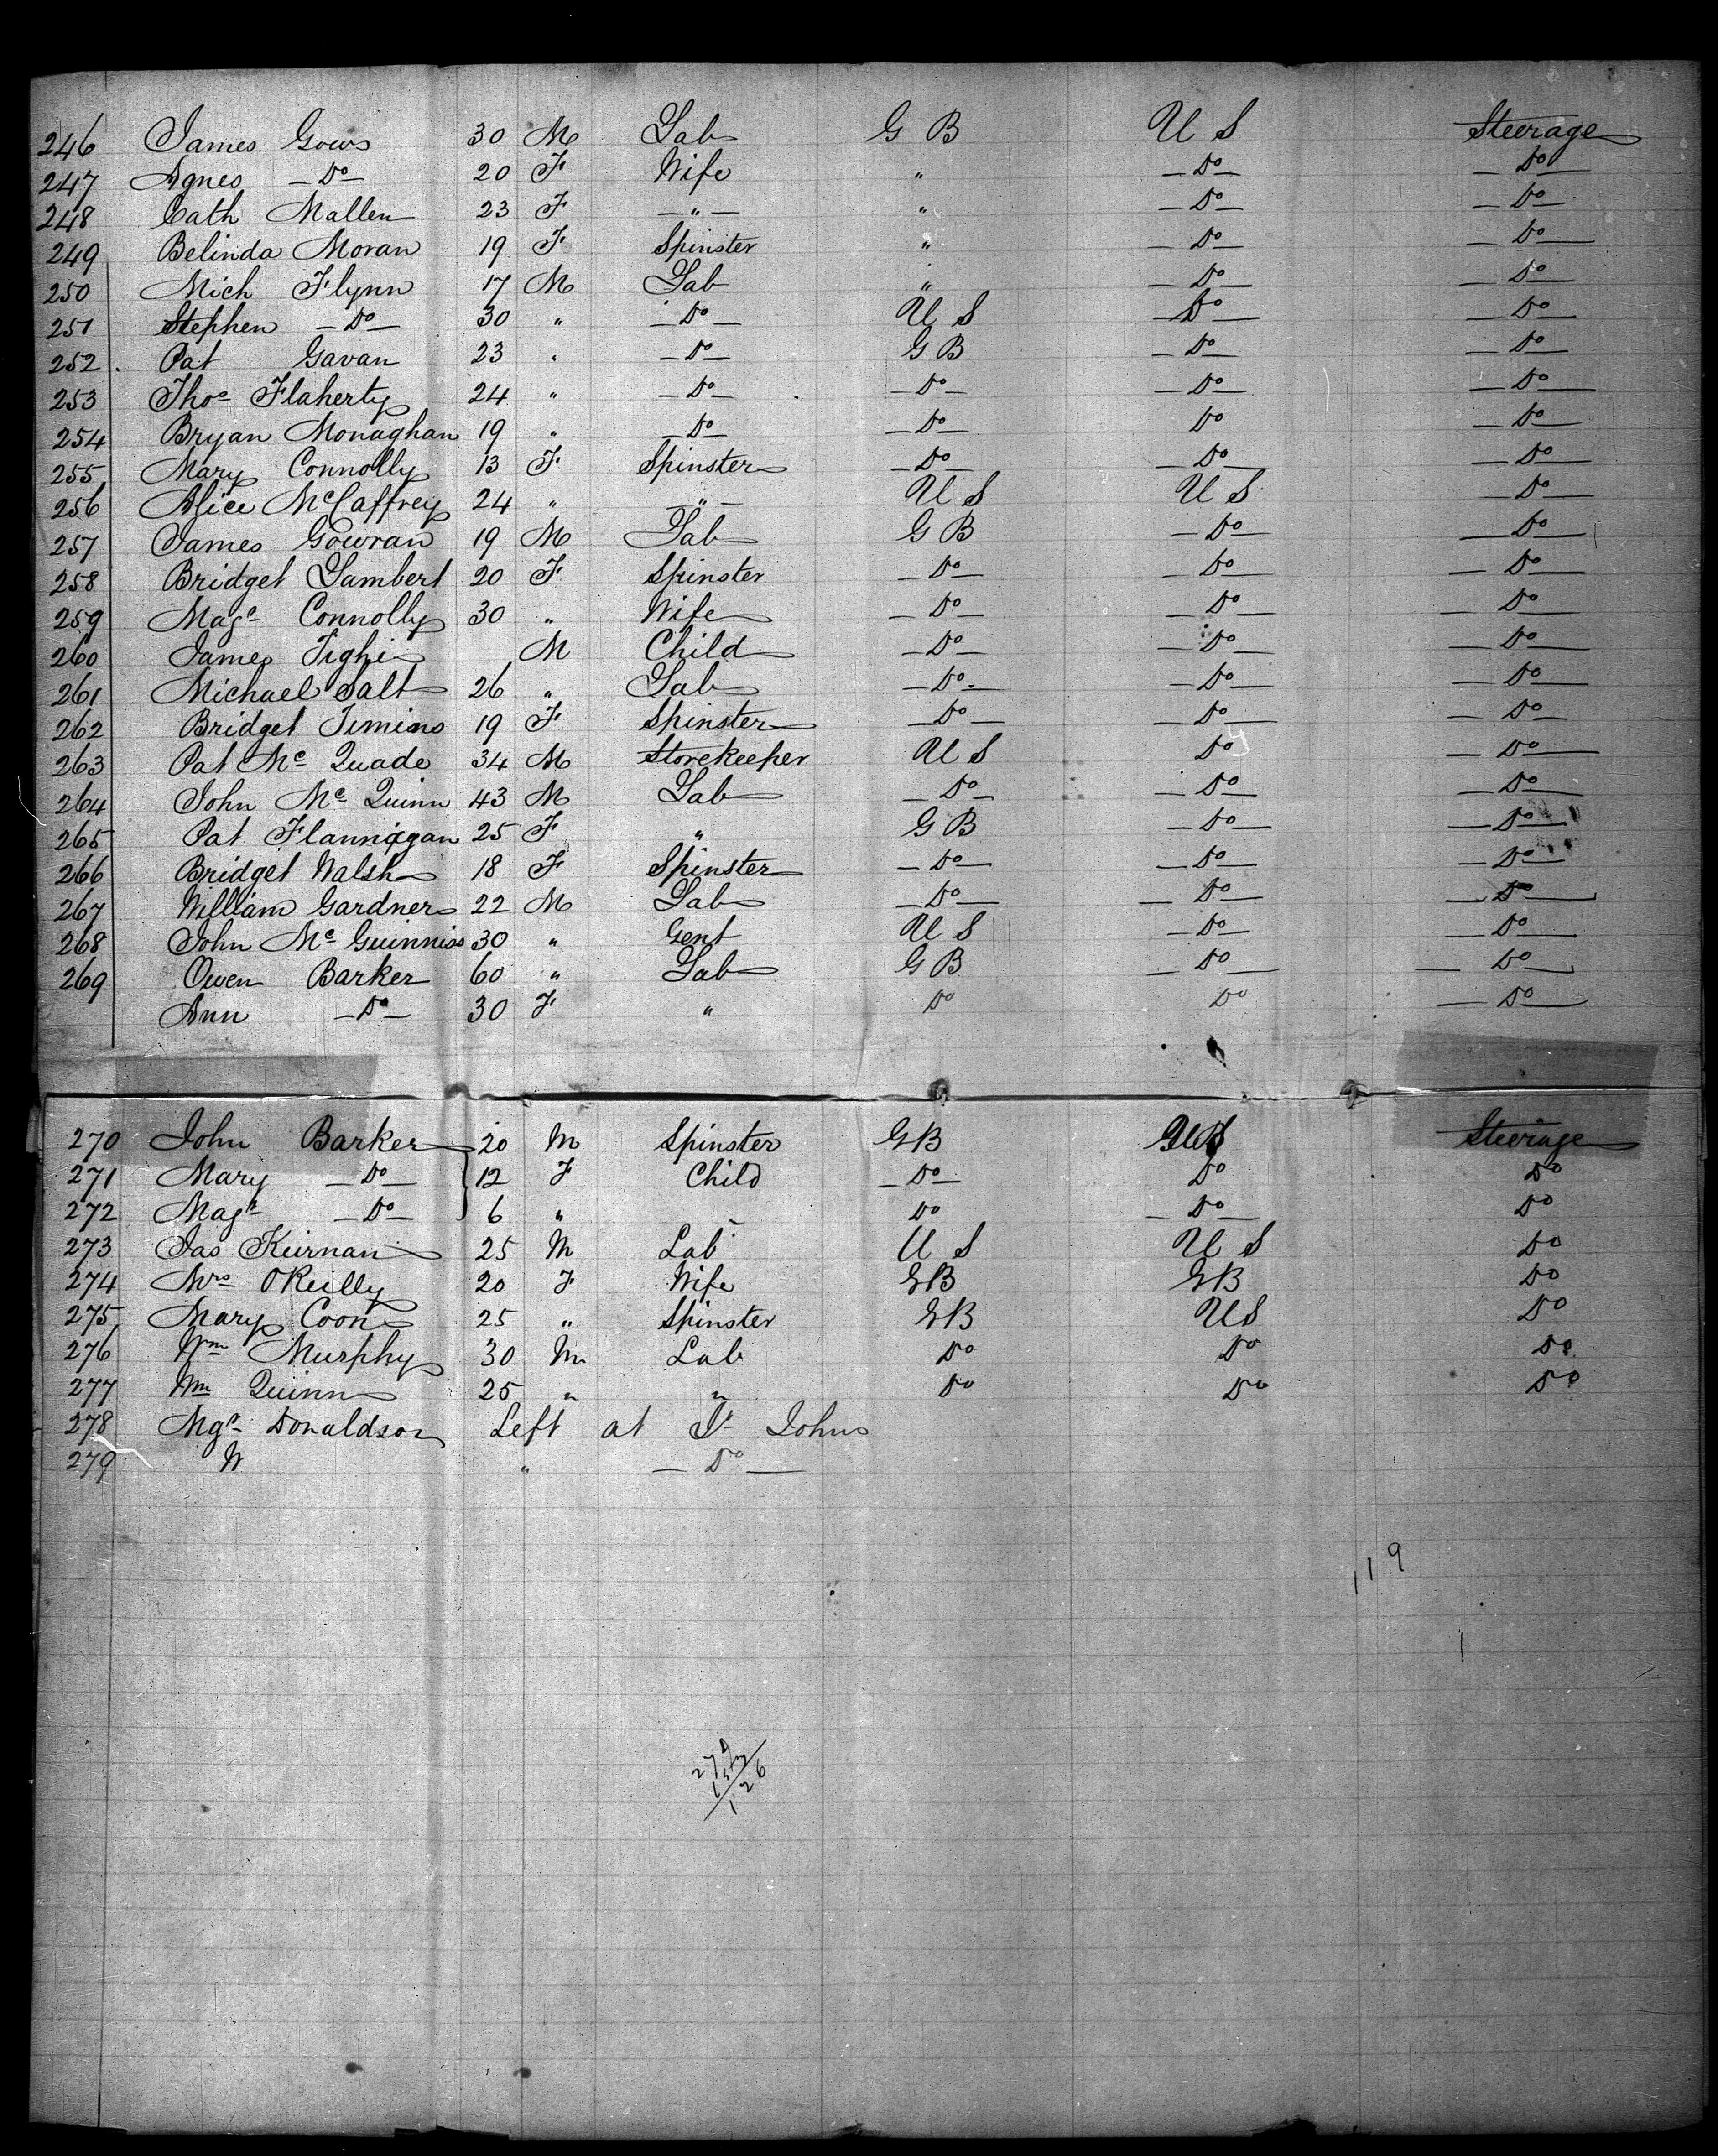 246 James Gows 30 M Lab G B U S Steerage
247 Agnes — Do — 20 F Wife " — Do — — Do —
248 Cath Mallen 23 F — " — " — Do — — Do —
249 Belinda Moran 19 F Spinster " — Do — — Do —
250 Mich Flynn 17 M Lab " — Do — — Do —
251 Stephen — Do — 30 " — Do — U S — Do — — Do —
252 . Pat Gavan 23 " — Do — G B — Do — — Do —
253 Thos Flaherty 24 " — Do — — Do — — Do — — Do —
254 Bryan Monaghan 19 " — Do — — Do — Do — Do —
255 Mary Connolly 13 F Spinster — Do — — Do — — Do —
256 Alice McCaffrey 24 " — " — U S U S — Do —
257 James Gowran 19 M Lab G B — Do — — Do —
258 Bridget Lambert 20 F Spinster — Do — — Do — — Do —
259 Magt Connolly 30 " Wife — Do — — Do — — Do —
260 James Tighe M Child — Do — — Do — — Do —
261 Michael Salt 26 " Lab — Do — — Do — — Do —
262 Bridget Timins 19 F Spinster — Do — — Do — — Do —
263 Pat Mc Quade 34 M Storekeeper U S Do — Do —
264 John Mc Quinn 43 M Lab — Do — — Do — — Do —
265 Pat Flannigan 25 F " G B — Do — — Do —
266 Bridget Walsh 18 F Spinster — Do — — Do — — Do —
267 William Gardner 22 M Lab — Do — — Do — — Do —
268 John Mc Guinniss 30 " Gent U S — Do — — Do —
269 Owen Barker 60 " Lab G B — Do — — Do —
Ann — Do — 30 F " Do Do — Do —
270 John Barker 20 M Spinster G B U S Steerage
271 Mary — Do — 12 F Child — Do — Do Do
272 Magt — Do — 6 " " Do — Do — Do
273 Jas Keirnan 25 M Lab U S U S Do
274 Mrs OReilly 20 F Wife G B G B Do
275 Mary Coon 25 " Spinster G B U S Do
276 Wm Murphy 30 M Lab Do Do Do
277 Wm Quinn 25 " " Do Do Do
278 Mgt Donaldson Left at St Johns
279 W " — Do —
119
279
153
126